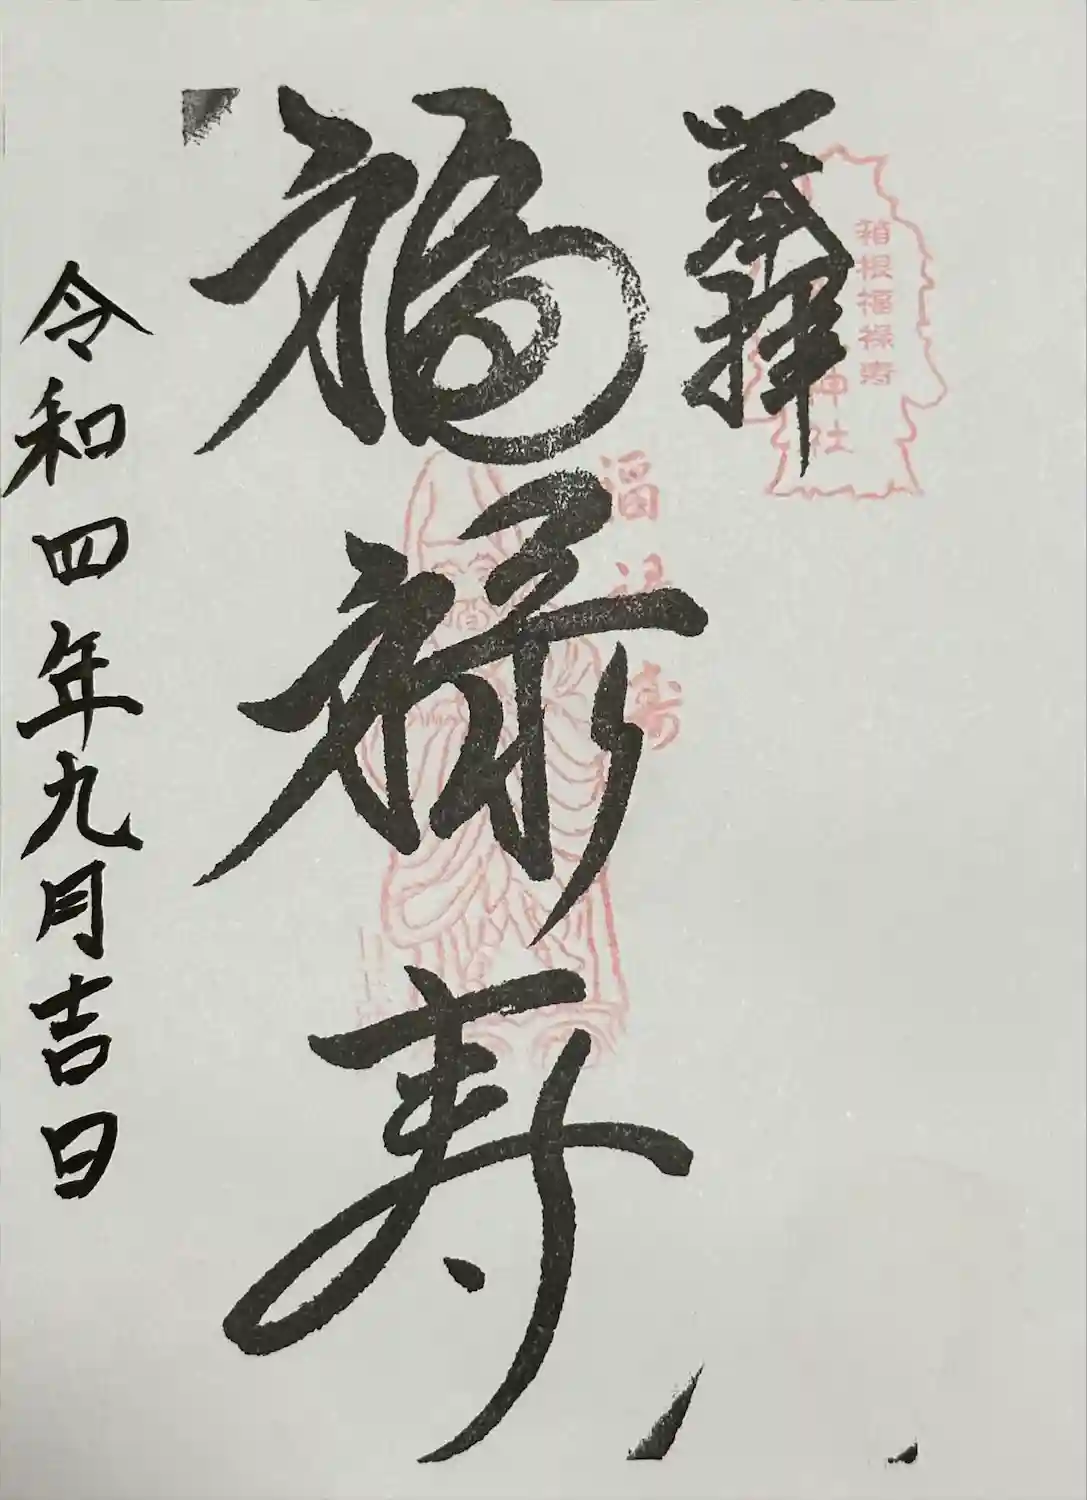 奉拝
箱根福禄寿
神社
福禄寿
福禄寿
令和四年九月吉日